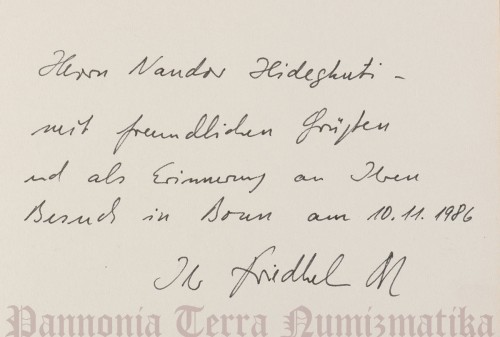 Herrn Nandor Hideghuti -
mit freundlichen Grüßen
und als Erinnerung an Ihren
Besuch in Bonn am 10.11.1986
Ihr Friedhel
Pannonia Terra Numizmatika